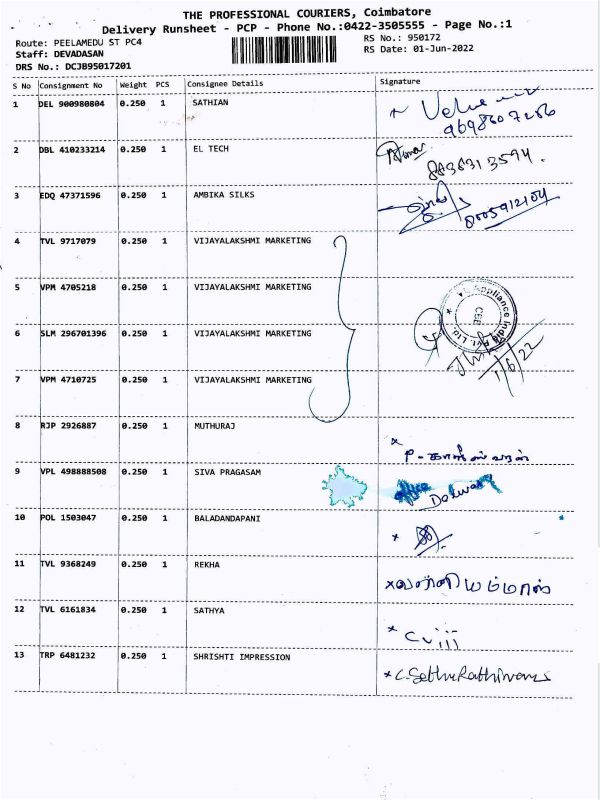 THE PROFESSIONAL COURIERS, Coimbatore
Delivery Runsheet - PCP - Phone No.:0422-3505555 - Page No.:1
Route: PEELAMEDU ST PC4 RS No.: 950172
Staff: DEVADASAN RS Date: 01-Jun-2022
DRS No.: DCJB95017201
S No Consignment No Weight PCS Consignee Details Signature
1 DEL 900980804 0.250 1 SATHIAN
9698607256
2 DBL 410233214 0.250 1 EL TECH
8838313594.
3 EDQ 47371596 0.250 1 AMBIKA SILKS
8005912104
4 TVL 9717079 0.250 1 VIJAYALAKSHMI MARKETING
5 VPM 4705218 0.250 1 VIJAYALAKSHMI MARKETING
Appliance India Pvt. Ltd.
CBE
6 SLM 296701396 0.250 1 VIJAYALAKSHMI MARKETING
1/6/22
7 VPM 4710725 0.250 1 VIJAYALAKSHMI MARKETING
8 RJP 2926887 0.250 1 MUTHURAJ
9 VPL 498888508 0.250 1 SIVA PRAGASAM
office
10 POL 1503047 0.250 1 BALADANDAPANI
11 TVL 9368249 0.250 1 REKHA
12 TVL 6161834 0.250 1 SATHYA
13 TRP 6481232 0.250 1 SHRISHTI IMPRESSION